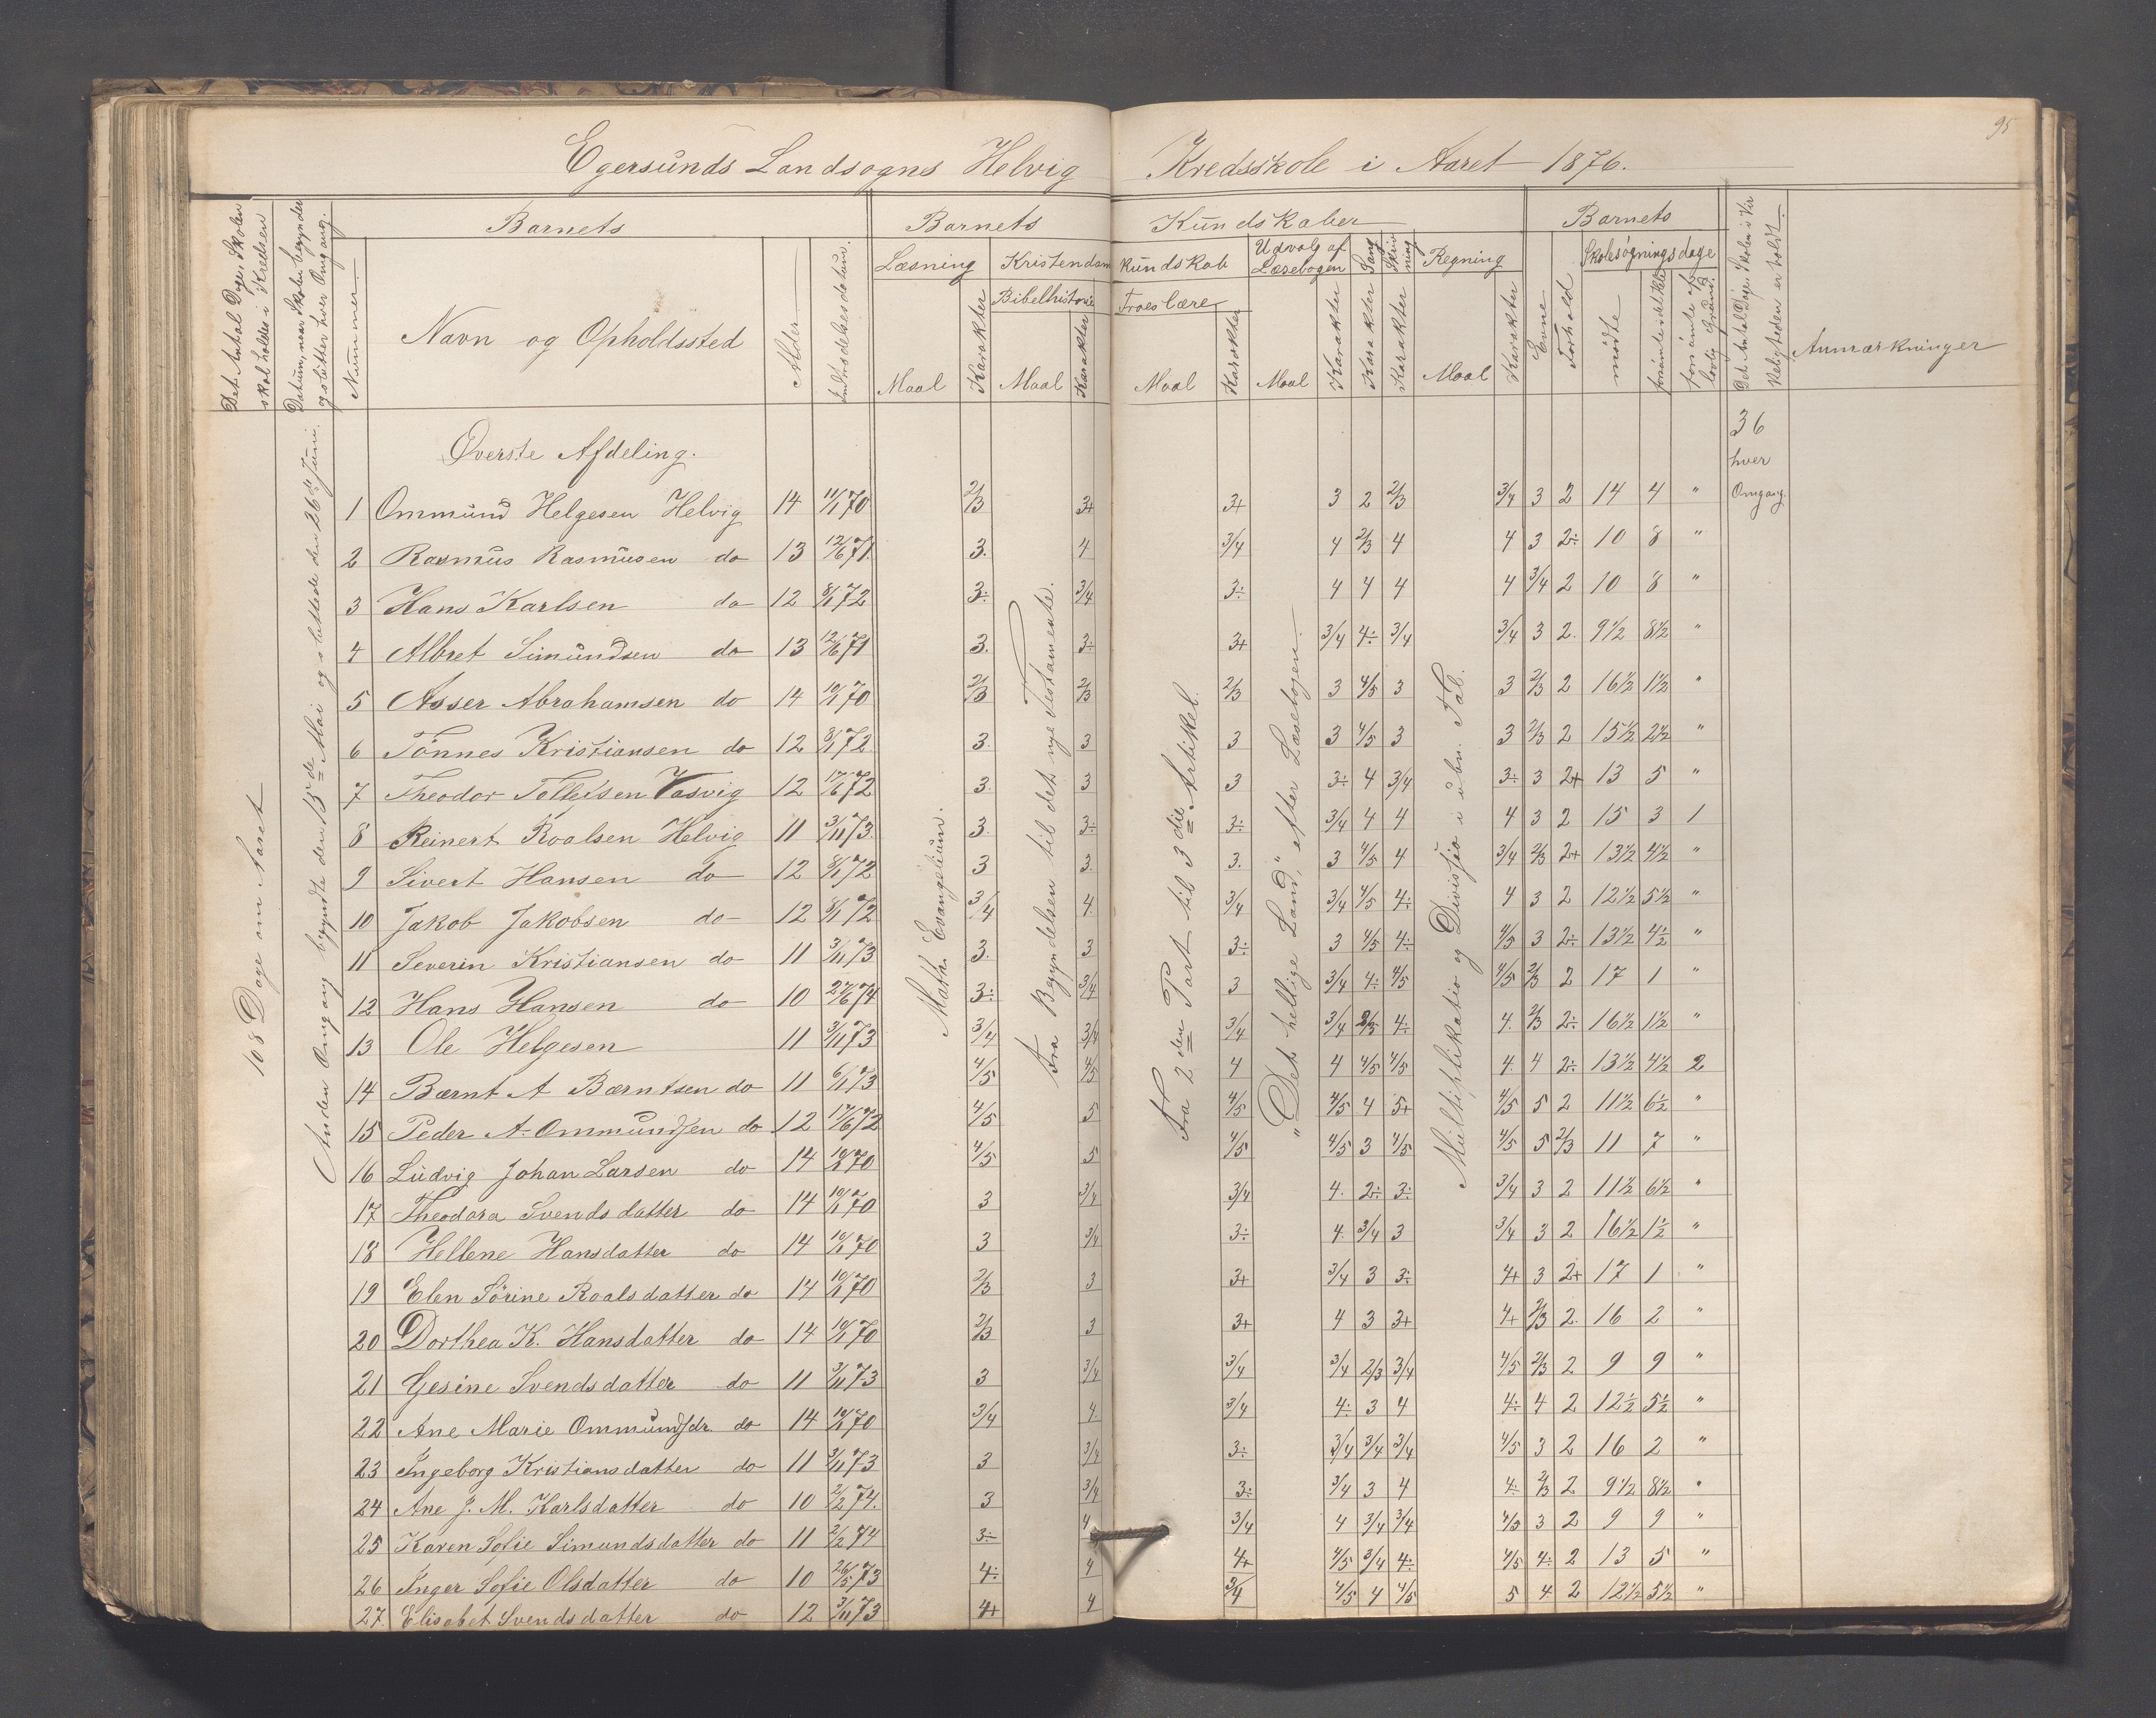 95
Egersunds Landsogns Helvig Kredsskole i Aaret 1876.
Det Antal Dage Skolen skal holdes i Kredsen
Datum, naar Skolen begynder og slutter hver Omgang.
Nummer
Barnets
Navn og Opholdssted
Alder
Indtrædelsesdatum
Barnets Kundskaber
Læsning
Maal
Karakter
Kristendomskundskab
Bibelhistorie
Maal
Karakter
Troeslære
Maal
Karakter
Udvalg af Læsebogen
Maal
Karakter
Sang
Karakter
Skrivning
Karakter
Regning
Maal
Karakter
Barnets
Evne
Forhold
Skolesøgningsdage
mødte
forsømte det hele
forsømte af lovlig Grund.
Det Antal Dage Skolen i Virkeligheden er holdt.
Anmærkninger
108 Dage om Aaret
Anden Omgang begyndte den 15de Mai og sluttede den 26de Juni.
Math. Evangelium.
Fra Begyndelsen til det nye Testamente.
Fra 2den Part til 3die Artikel.
"Det hellige Land," efter Læsebogen.
Multiplikatio og Divisjio i ubn. Tal.
36 hver Omgang.
Øverste Afdeling.
1 Ommund Helgesen Helvig 14 11/1 70 2/3 3+ 3+ 3 2 2/3 3/4 3 2 14 4 "
2 Rasmus Rasmusen do 13 12/6 71 3. 4 3/4 4 2/3 4 4 3 2÷ 10 8 "
3 Hans Karlsen do 12 8/1 72 3÷ 3/4 3÷ 4 4 4 4 3/4 2 10 8 "
4 Albret Simundsen do 13 12/6 71 3. 3÷ 3+ 3/4 4÷ 3/4 3/4 3 2. 9½ 8½ "
5 Asser Abrahamsen do 14 10/1 70 2/3 2/3 2/3 3 4/5 3 3 2/3 2 16½ 1½ "
6 Tönnes Kristiansen do 12 8/1 72 3. 3 3 3 4/5 3 3 2/3 2 15½ 2½ "
7 Theodor Tollefsen Vasvig 12 17/6 72 3. 3 3 3÷ 4 3/4 3÷ 3 2+ 13 5 "
8 Reinert Roalsen Helvig 11 3/11 73. 3. 3÷ 3÷ 3/4 4 4 4 3 2 15 3 1
9 Sivert Hansen do 12 8/1 72 3 3. 3. 3 4/5 4 3/4 2/3 2+ 13½ 4½ "
10 Jakob Jakobsen do 12 8/1 72 3/4 4. 3/4 3/4 4/5 4÷ 4 3 2 12½ 5½ "
11 Severin Kristiansen do 11 3/11 73 3. 3 3÷ 3 4/5 4÷ 4/5 3 2÷ 13½ 4½ "
12 Hans Hansen do 10 27/6 74 3÷ 3/4 3 3/4 4÷ 4/5 4/5 2/3 2 17 1 "
13 Ole Helgesen 11 3/11 73 3/4 3/4 3/4 3/4 2/3 4÷ 4. 2/3 2÷ 16½ 1½ "
14 Bærnt A Bærntsen do 11 6/1 73 4/5 4/5 4 4 4/5 4/5 4. 4 2÷ 13½ 4½ 2
15 Peder A. Ommundsen do 12 17/6 72 4/5 5 4/5 4/5 4 5+ 4/5 5 2 11½ 6½ "
16 Ludvig Johan Larsen do 14 10/1 70 4/5 5 4/5 4/5 3 4/5 4/5 5 2/3 11 7 "
17 Theodora Svendsdatter do 14 10/1 70 3 3/4 3/4 4. 2÷ 3÷ 3/4 3 2 11½ 6½ "
18 Hellene Hansdatter do 14 10/1 70 3 3/4 3÷ 4. 3/4 3 3/4 3 2 16½ 1½ "
19 Elen Sörine Roalsdatter do 14 10/1 70 2/3 3 3+ 3/4 3 3÷ 4+ 3 2+ 17 1 "
20 Dorthea K. Hansdatter do 14 10/1 70 2/3 3 3+ 4 3 3+ 4+ 2/3 2. 16 2 "
21 Gesine Svendsdatter do 11 3/11 73 3 3/4 3/4 3/4 2/3 3/4 4/5 2/3 2 9 9 "
22 Ane Marie Ommundsdr. do 14 10/1 70 3/4 4. 3/4 4÷ 3 4 4÷ 4 2 12½ 5½ "
23 Ingeborg Kristiansdatter do 11 3/11 73 3 3/4 3÷ 3/4 3/4 3/4 4/5 3 2 16 2 "
24 Ane J. M. Karlsdatter do 10 2/2 74. 3 3/4 3÷ 3/4 3 4 4÷ 2/3 2 9½ 8½ "
25 Karen Sofie Simundsdatter do 11 2/2 74 3÷ 4 3/4 4 3/4 3/4 4/5 3 2 9 9 "
26 Inger Sofie Olsdatter do 10 26/5 73 4÷ 4 4+ 4/5 3/4 4÷ 4/5 4÷ 2 13 5 "
27. Elisabet Svendsdatter do 12 3/11 73 4+ 4 3/4 4/5 4 4/5 5 4 2 12½ 5½ "